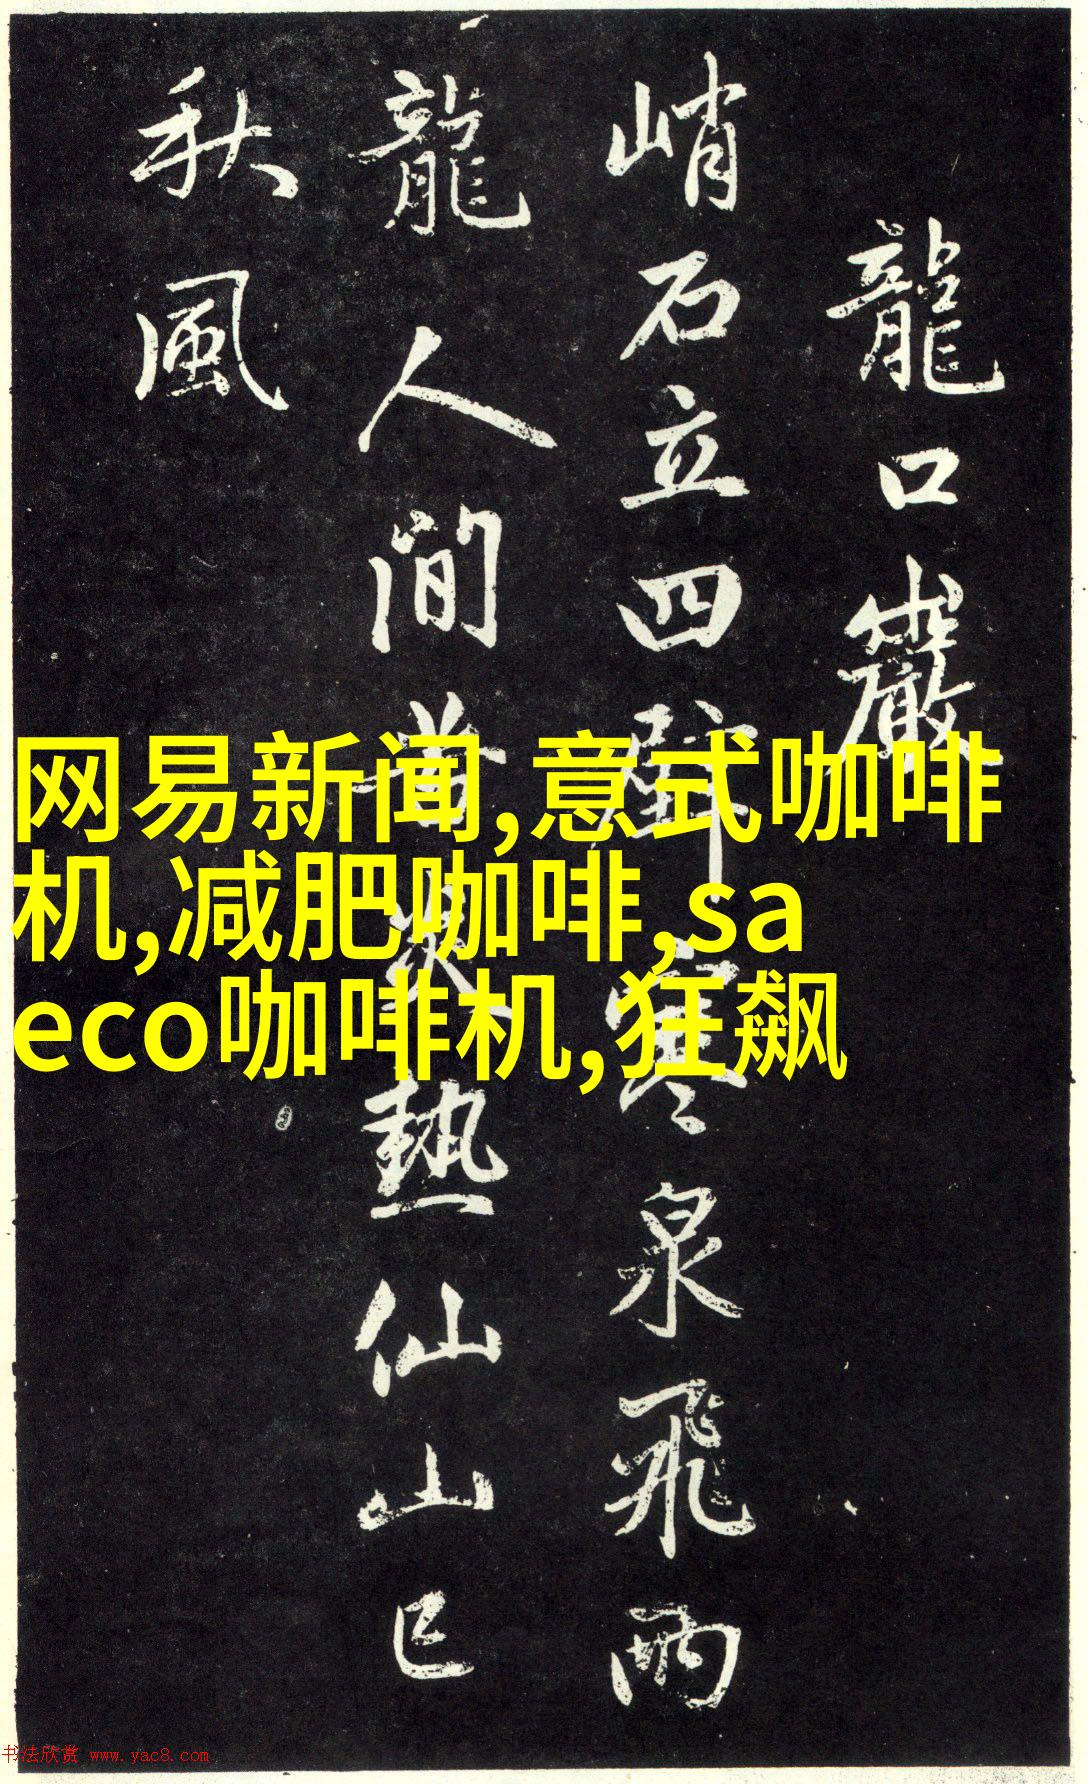 龍口巖
峭石立四壁寒泉飛兩
龍人間苦炎熱仙山已
秋風
网易新闻,意式咖啡
机,减肥咖啡,sa
eco咖啡机,狂飙
书法欣赏 www.yac8.com